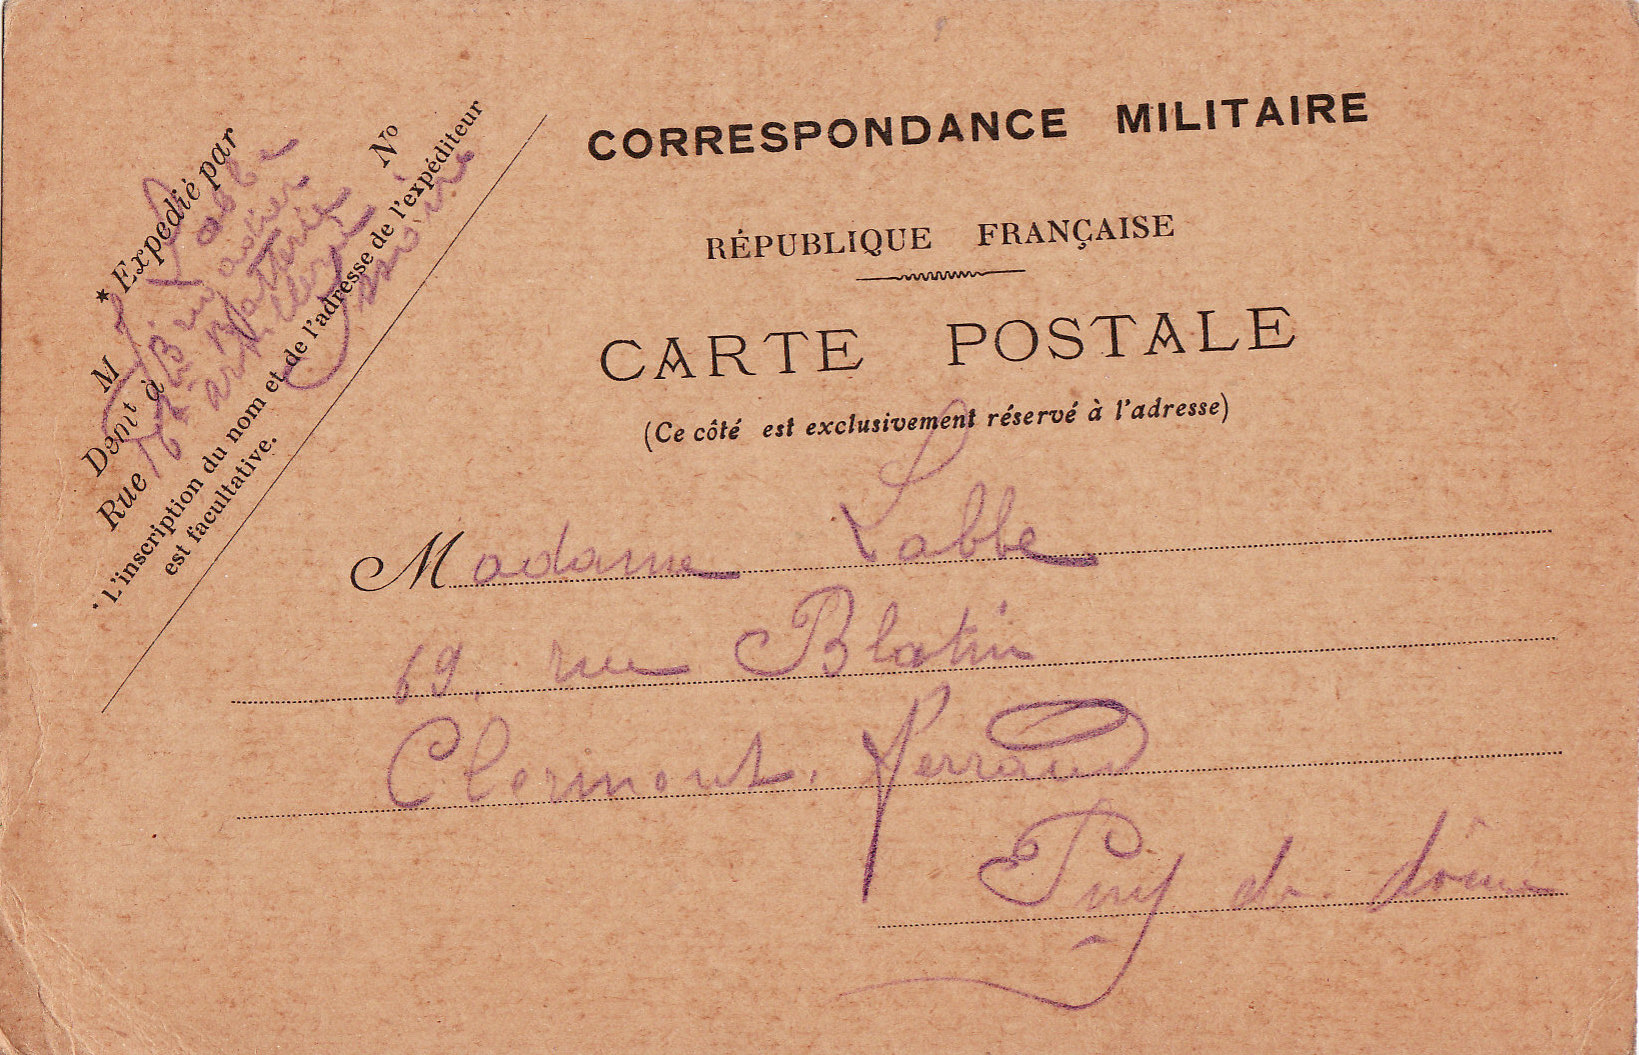 CORRESPONDANCE MILITAIRE
RÉPUBLIQUE FRANÇAISE
CARTE POSTALE
(Ce côté est exclusivement réservé à l'adresse)
* Expedié par
M Labbé
Demt à
Rue No
Batterie
Issoire
* L'inscription du nom et de l'adresse de l'expéditeur
est facultative.
Madame Labbe
69, rue Blatin
Clermont. Ferrand
Puy de dôme